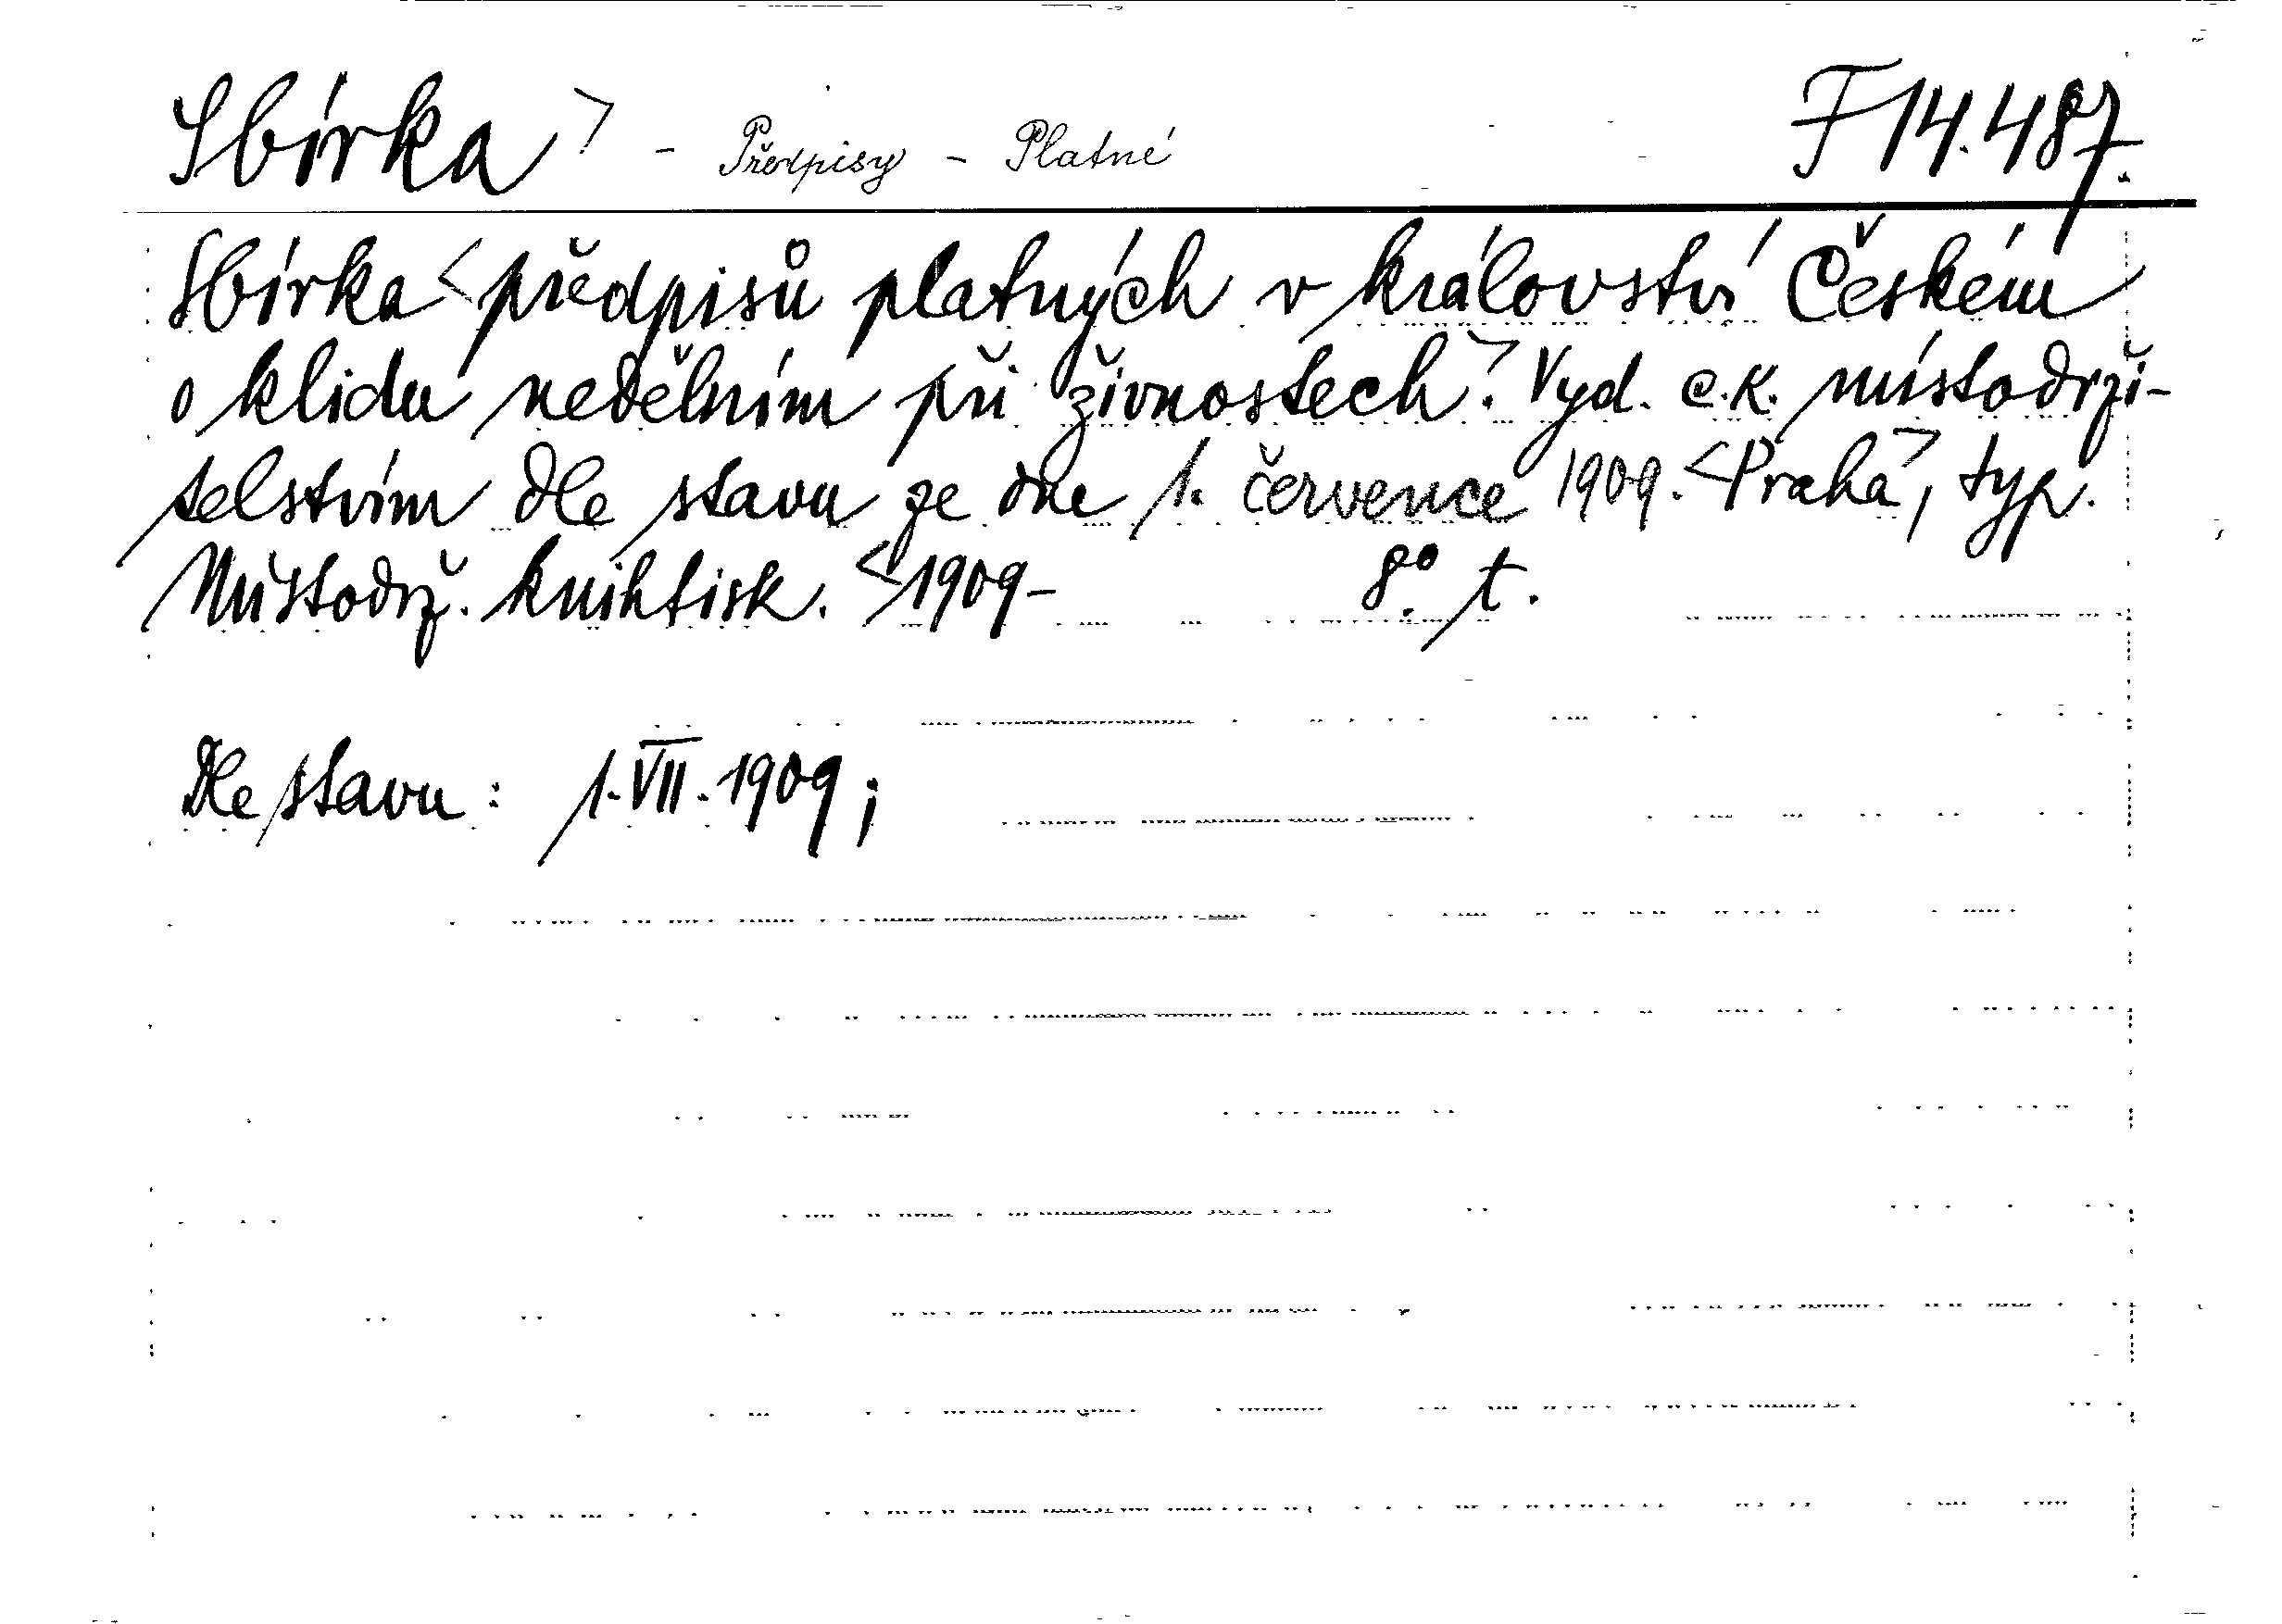 Sbírka> - Předpisy - Platné F 14.487.
Sbírka <předpisů platných v království Českém
o klidu nedělním při živnostech.> Vyd. c.k. místodrži-
telstvím dle stavu ze dne 1. července 1909. <Praha>, typ.
Místodrž. knihtisk. <1909- 8°. t.
Dle stavu: 1.VII.1909;